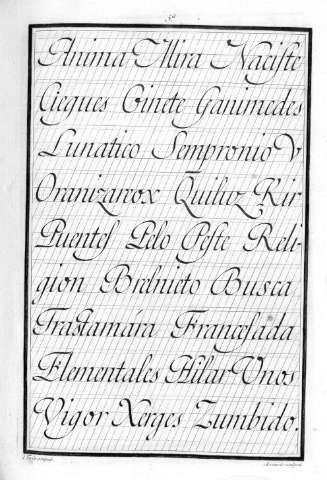 50
Anima Mira Naciste
Ciegues Ginete Ganimedes
Lunatico Sempronio V
Oranizareox Quiluz Kir
Puentes Pelo Peste Reli-
gion Brebnieto Busca
Trastamára Francesada
Elementales Hilar Unos
Vigor Xerges Zumbido.